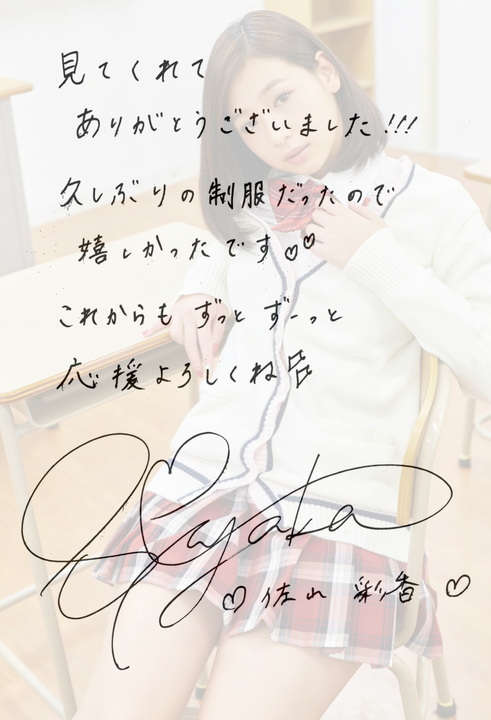 見てくれて
ありがとうございました!!!
久しぶりの制服だったので
嬉しかったです♡♡
これからも ずっと ずーっと
応援よろしくね
Sayaka
♡ 佐山 彩香 ♡